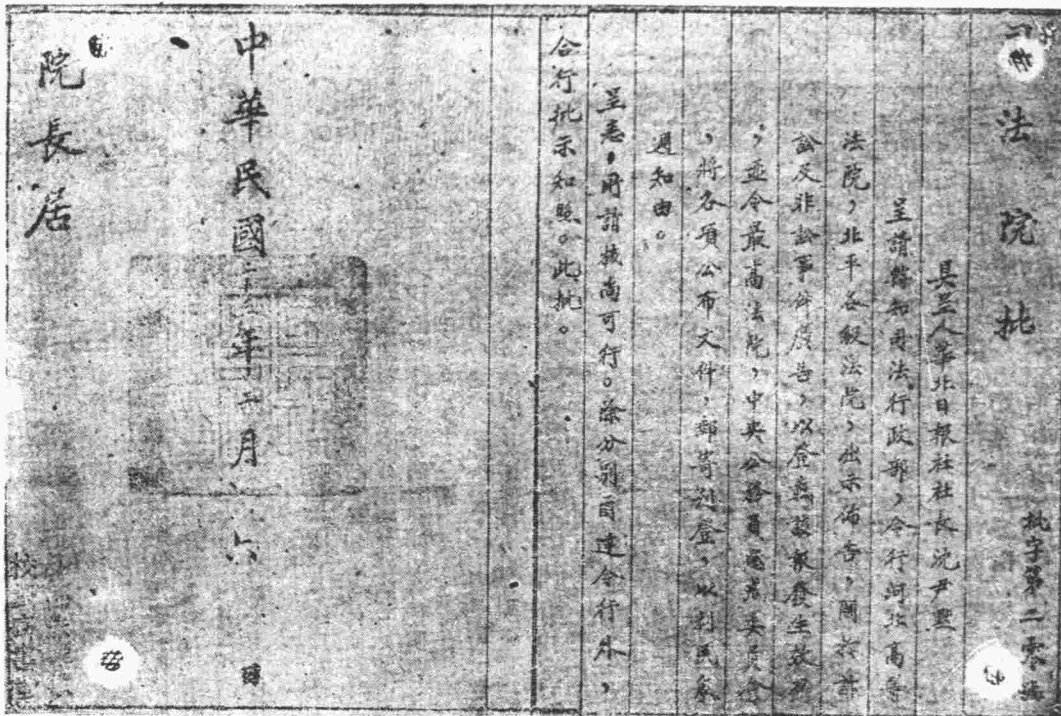 司法院批
批字第二零號
具呈人華北日報社社長沈尹默
呈請飭知司法行政部，令行河北高等
法院，北平各級法院，出示佈告，關於訴
訟及非訟事件廣告，以登載該報發生效力
，並令最高法院，中央公務員懲戒委員會
，將各項公布文件，郵寄刊登，以利民眾
週知由。
呈悉，所請核尚可行。除分別函達令行外，
合行批示知照。此批。
中華民國二十三年二月六
院長居